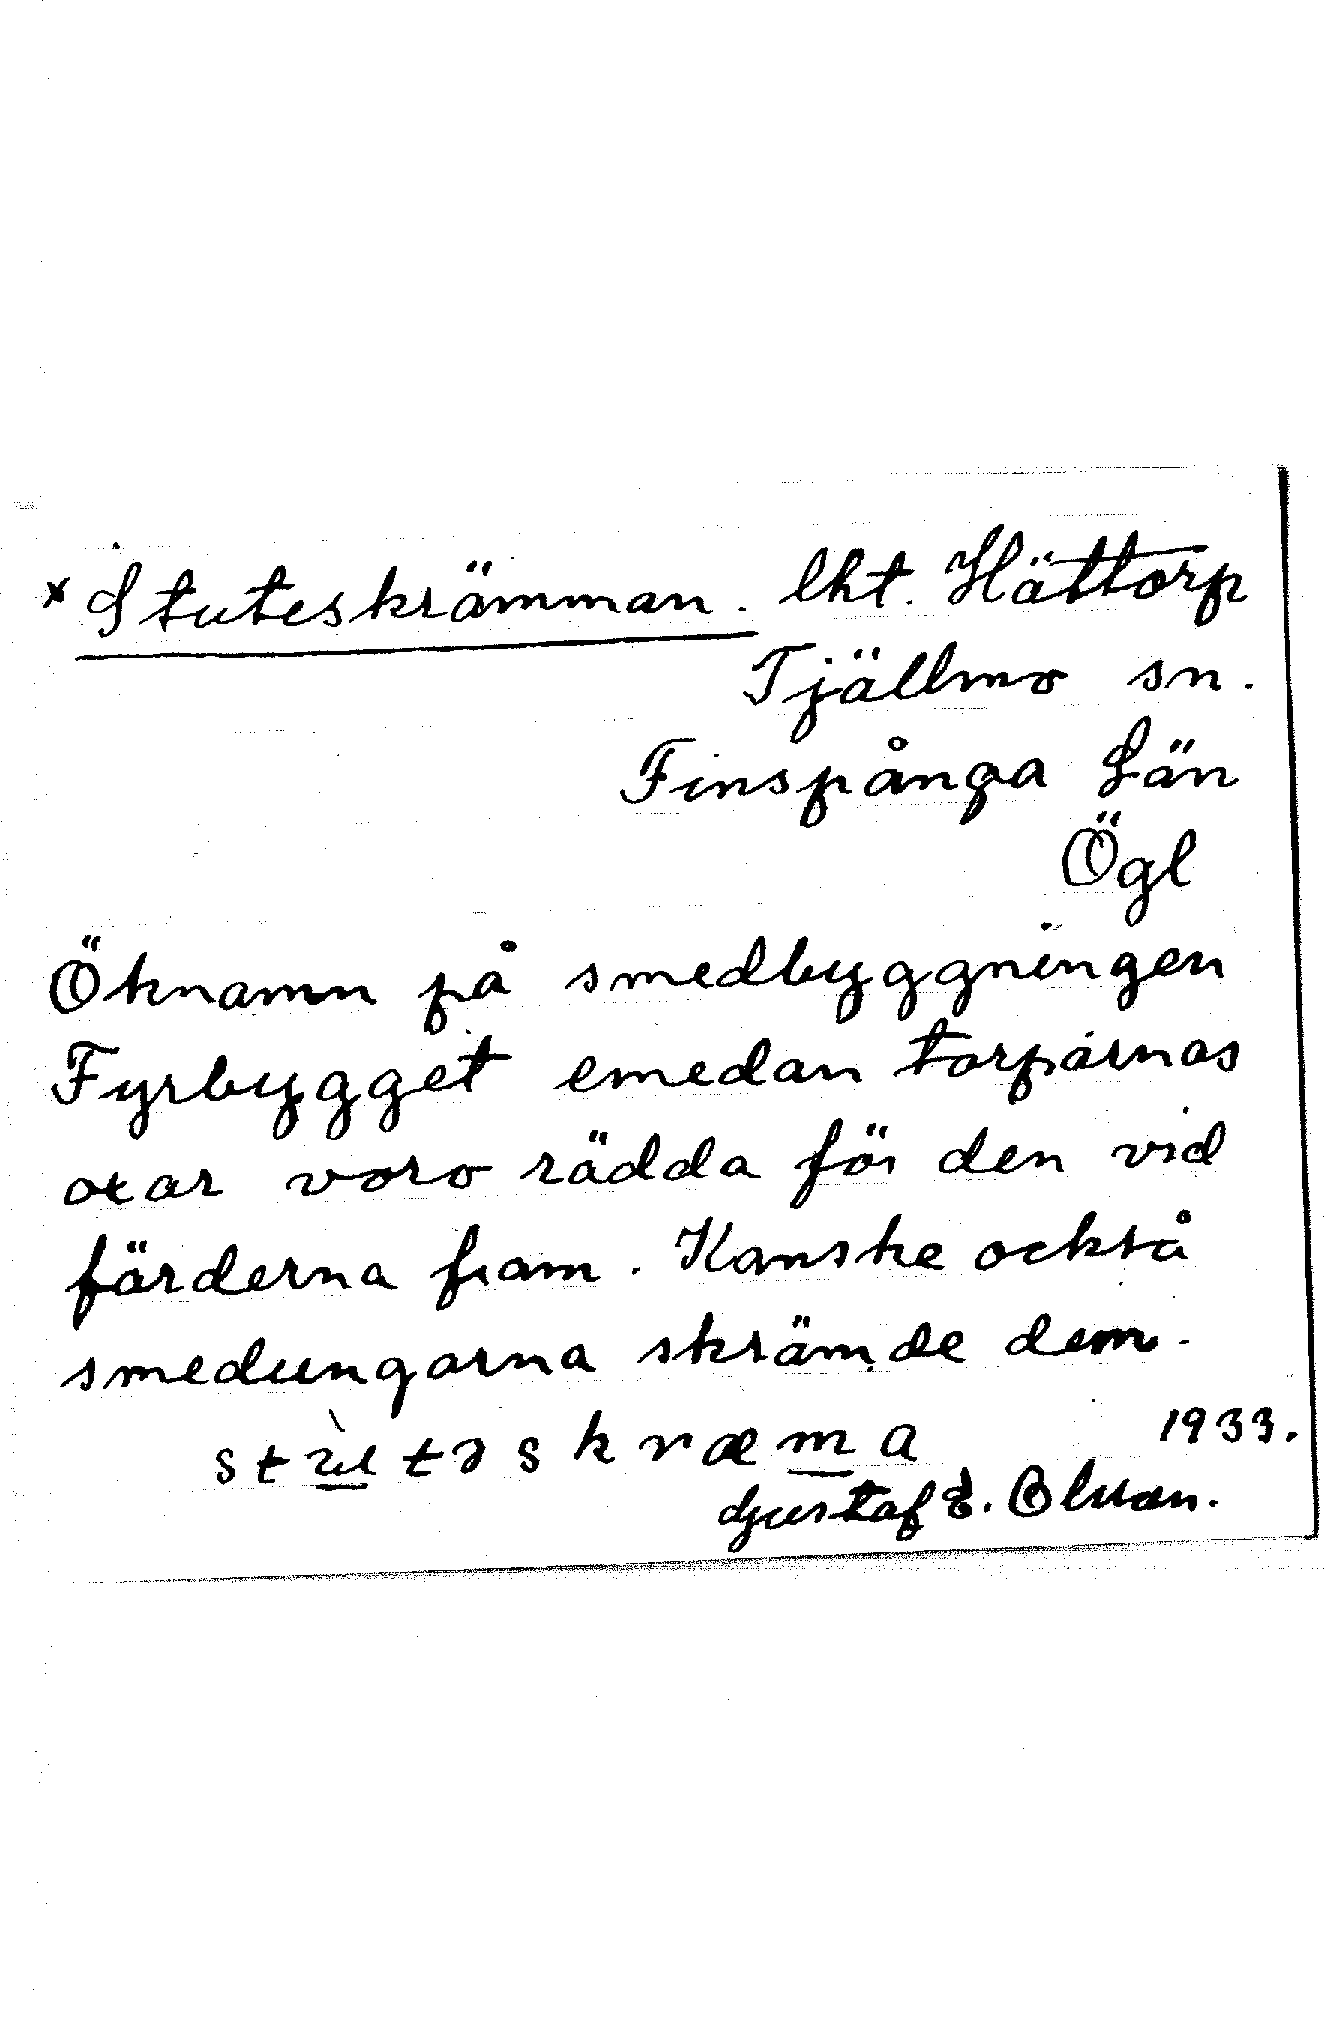 x Stuteskrämman. lht. Hättorp
Tjällmo sn.
Finspånga Län
Ögl
Öknamn på smedbyggningen
Fyrbygget emedan torparnas
oxar voro rädda för den vid
färderna fram. Kanske också
smedungarna skrämde dem.
stù̱təskræm̱a
1933.
Gustaf E. Olsson.